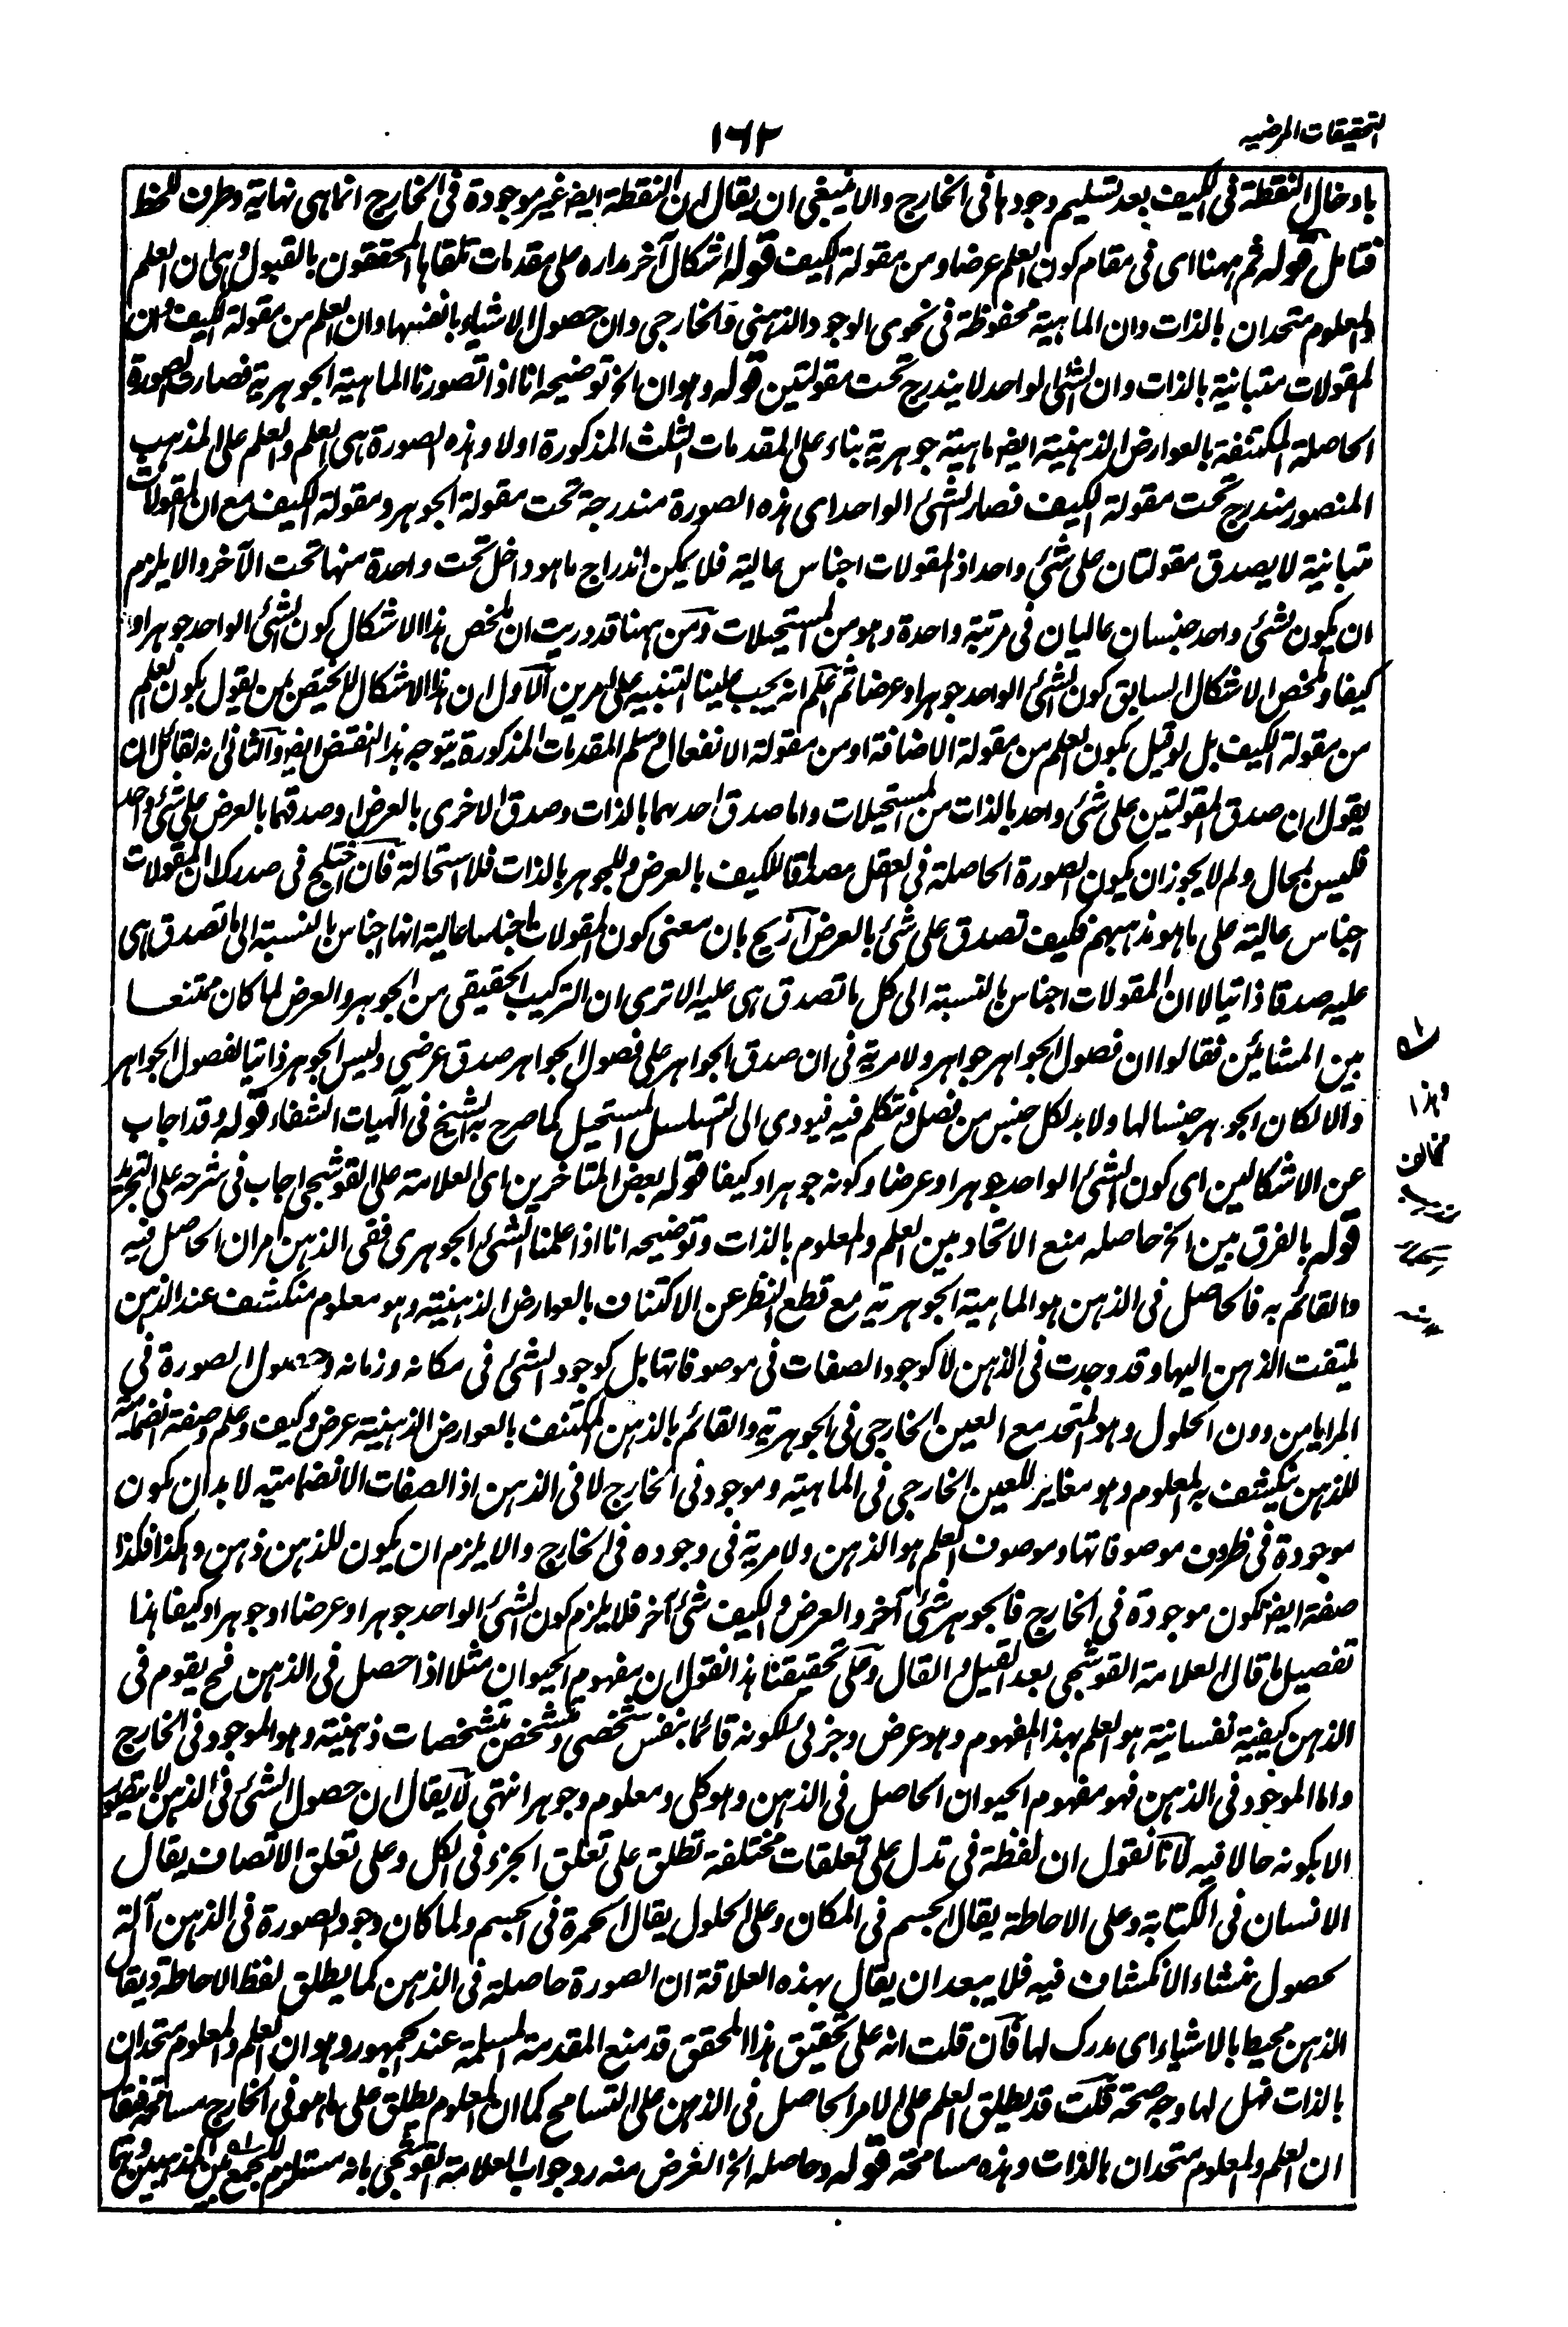 التحقيقات المرضيه
١٦٢
بادخال النقطة فى الكيف بعد تسليم وجودها فى الخارج والا ينبغى ان يقال ان النقطة ايض غير موجودة فى الخارج انما هى نهاية وطرف للخط
فتامل قوله ثم ههنا اى فى مقام كون العلم عرضا ومن مقولة الكيف قوله اشكال آخر مداره على مقدمات تلقاها المحققون بالقبول وهى ان العلم
والمعلوم متحدان بالذات وان الماهية محفوظة فى نحوى الوجود الذهنى والخارجى وان حصول الاشياء بانفسها وان العلم من مقولة الكيف وان
المقولات متباينة بالذات وان الشئ الواحد لا يندرج تحت مقولتين قوله وهو ان الخ توضيحه انا اذا تصورنا الماهية الجوهرية فصارت الصورة
الحاصلة المكتنفة بالعوارض الذهنية ايض ماهية جوهرية بناء على المقدمات الثلث المذكورة اولا وهذه الصورة هى العلم والعلم على المذهب
المنصور مندرج تحت مقولة الكيف فصار الشئ الواحد اى هذه الصورة مندرجة تحت مقولة الجوهر ومقولة الكيف مع ان المقولات
متباينة لا يصدق مقولتان على شئ واحد اذ المقولات اجناس عالية فلا يمكن اندراج ما هو داخل تحت واحدة منها تحت الآخر والا يلزم
ان يكون لشئ واحد جنسان عاليان فى مرتبة واحدة وهو من المستحيلات ومن ههنا قد دريت ان ملخص هذا الاشكال كون الشئ الواحد جوهرا و
كيفا وملخص الاشكال السابق كون الشئ الواحد جوهرا وعرضا ثم اعلم انه يجب علينا التنبيه على امرين الاول ان هذا الاشكال لا يختص لمن يقول بكون العلم
من مقولة الكيف بل لو قيل بكون العلم من مقولة الاضافة او من مقولة الانفعال وسلم المقدمات المذكورة يتوجه هذا النقض ايض والثانى انه لقائل ان
يقول ان صدق المقولتين على شئ واحد بالذات من المستحيلات واما صدق احدهما بالذات وصدق الاخرى بالعرض او صدقهما بالعرض على شئ واحد
فليس بمحال ولم لا يجوز ان يكون الصورة الحاصلة فى العقل مصداقا للكيف بالعرض وللجوهر بالذات فلا استحالة فان اختلج فى صدرك ان المقولات
اجناس عالية على ما هو مذهبهم فكيف تصدق على شئ بالعرض ازيح بان معنى كون المقولات اجناسا عالية انها اجناس بالنسبة الى ما تصدق هى
عليه صدقا ذاتيا لا ان المقولات اجناس بالنسبة الى كل ما تصدق هى عليه الا ترى ان التركيب الحقيقى من الجوهر والعرض لما كان ممتنعا
بين المشائين فقالوا ان فصول الجواهر جواهر ولا مرية فى ان صدق الجواهر على فصول الجواهر صدق عرضى وليس الجوهر ذاتيا لفصول الجواهر
والا لكان الجوهر جنسا لها ولا بد لكل جنس من فصل فنتكلم فيه فيودى الى التسلسل المستحيل كما صرح به الشيخ فى آلهيات الشفاء قوله وقد اجاب
عن الاشكالين اى كون الشئ الواحد جوهرا وعرضا وكونه جوهرا وكيفا قوله بعض المتاخرين اى العلامة على القوشجى اجاب فى شرحه على التجريد
قوله بالفرق بين الخ حاصله منع الاتحاد بين العلم والمعلوم بالذات وتوضيحه انا اذا علمنا الشئ الجوهرى ففى الذهن امران الحاصل فيه
والقائم به فالحاصل فى الذهن هو الماهية الجوهرية مع قطع النظر عن الاكتناف بالعوارض الذهنية وهو معلوم منكشف عند الذهن
يلتفت الذهن اليها وقد وجدت فى الذهن لا كوجود الصفات فى موصوفاتها بل كوجود الشئ فى مكانه وزمانه وحصول الصورة فى
المرايا من دون الحلول وهو المتحد مع العين الخارجى فى الجوهرية والقائم بالذهن المكتنف بالعوارض الذهنية عرض وكيف وعلم وصفة انضمامية
للذهن ينكشف به المعلوم وهو مغاير للعين الخارجى فى الماهية وموجود فى الخارج لا فى الذهن اذ الصفات الانضمامية لا بد ان تكون
موجودة فى ظروف موصوفاتها وموصوف العلم هو الذهن ولا مرية فى وجوده فى الخارج والا يلزم ان يكون للذهن ذهن وهكذا فكذا
صفته ايض تكون موجودة فى الخارج فالجوهر شئ آخر والعرض والكيف شئ آخر فلا يلزم كون الشئ الواحد جوهرا وعرضا او جوهرا وكيفا هذا
تفصيل ما قال العلامة القوشجى بعد القيل والقال وعلى تحقيقنا هذا نقول ان مفهوم الحيوان مثلا اذا حصل فى الذهن فح يقوم فى
الذهن كيفية نفسانية هو العلم بهذا المفهوم وهو عرض وجزئى لكونه قائما بنفس شخصى ومتشخص بتشخصات ذهنية وهو الموجود فى الخارج
واما الموجود فى الذهن فهو مفهوم الحيوان الحاصل فى الذهن وهو كلى ومعلوم وجوهر انتهى لا يقال ان حصول الشئ فى الذهن لا يتصور
الا بكونه حالا فيه لانا نقول ان لفظة فى تدل على تعلقات مختلفة تطلق على تعلق الجزء فى الكل وعلى تعلق الاتصاف يقال
الانسان فى الكتابة وعلى الاحاطة يقال الجسم فى المكان وعلى الحلول يقال الحمرة فى الجسم ولما كان وجود الصورة فى الذهن آلة
لحصول منشاء الانكشاف فيه فلا يبعد ان يقال بهذه العلاقة ان الصورة حاصلة فى الذهن كما يطلق لفظ الاحاطة ويقال
الذهن محيط بالاشياء اى مدرك لها فان قلت انه على تحقيق هذا المحقق قد منع المقدمة المسلمة عند الجمهور وهو ان العلم والمعلوم متحدان
بالذات فهل لها وجه صحة قلت قد يطلق العلم على الامر الحاصل فى الذهن على التسامح كما ان المعلوم يطلق على ما هو فى الخارج مسامحة فقالوا
ان العلم والمعلوم متحدان بالذات وهذه مسامحة قوله وحاصله الخ الغرض منه رد جواب العلامة القوشجى بانه مستلزم للجمع بين المذهبين
وهذا
مخالف
منه